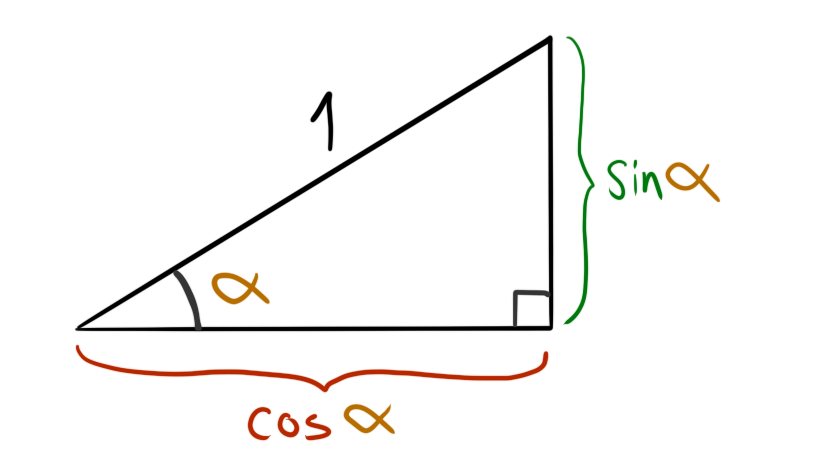 1
sin α
α
cos α